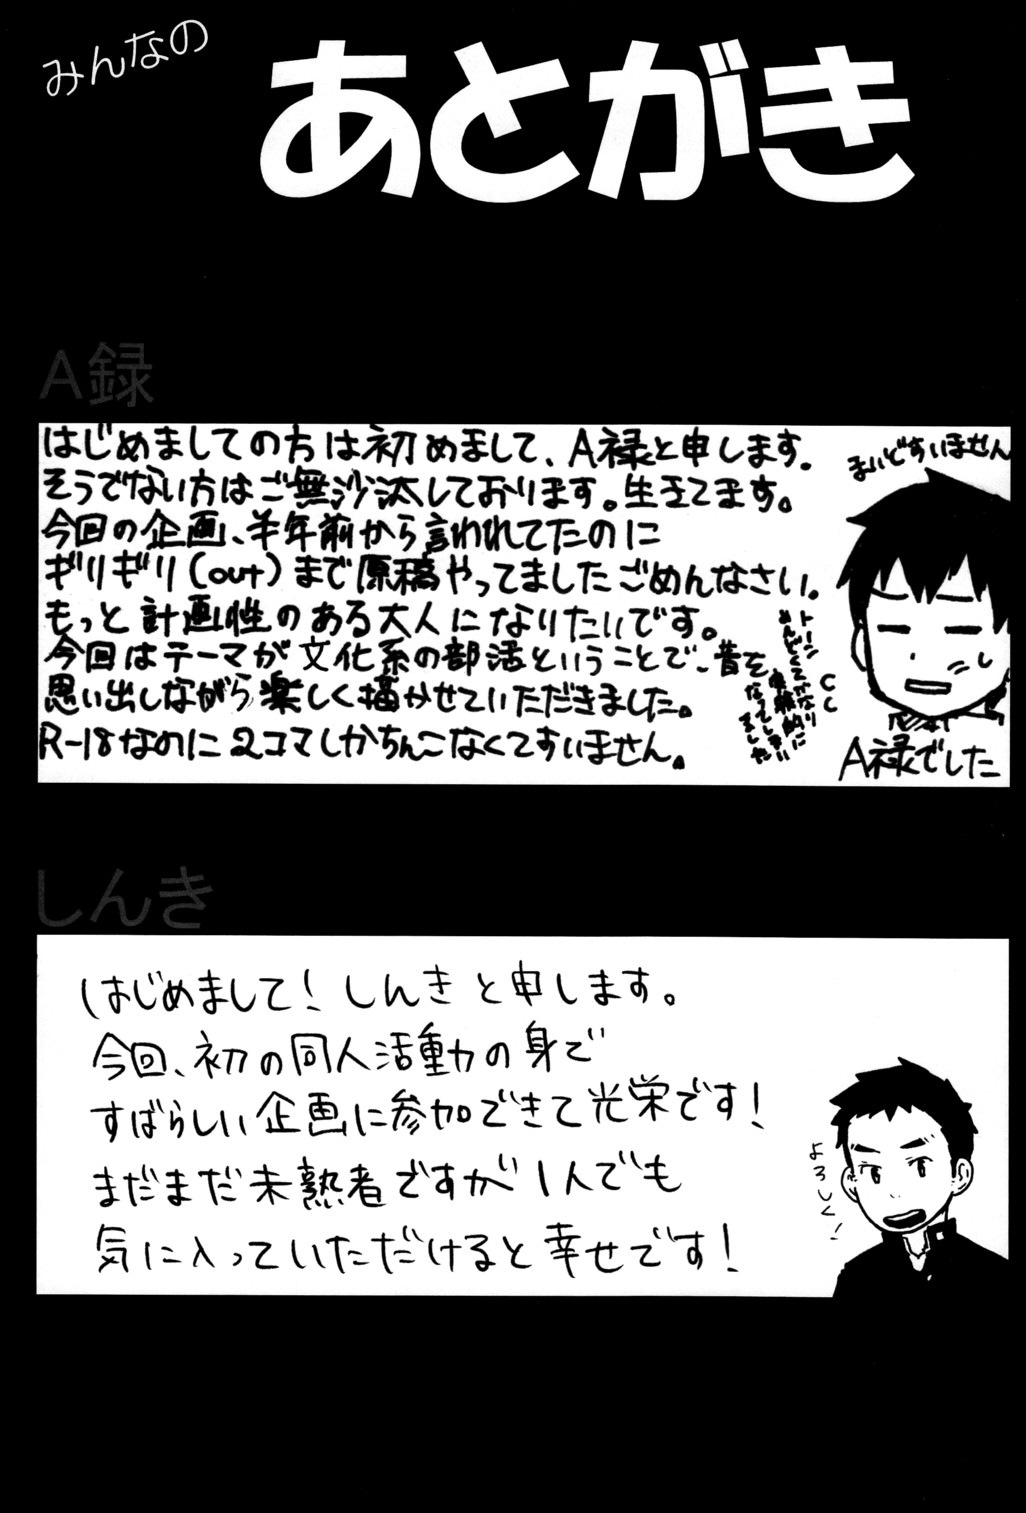 みんなの
あとがき
A録
はじめましての方は初めまして、A禄と申します。
そうでない方はご無沙汰しております。生きてます。
今回の企画、半年前から言われてたのに
ギリギリ(out)まで原稿やってましたごめんなさい。
もっと計画性のある大人になりたいです。
今回はテーマが文化系の部活ということで、昔を
思い出しながら楽しく描かせていただきました。
R-18なのに2コマしかちんこなくてすいません。
トーン
めんどくさがなり
なってしまい
ました
まいどすいません
A禄でした
しんき
はじめまして!しんきと申します。
今回、初の同人活動の身で
すばらしい企画に参加できて光栄です!
まだまだ未熟者ですが1人でも
気に入っていただけると幸せです!
よろしく!